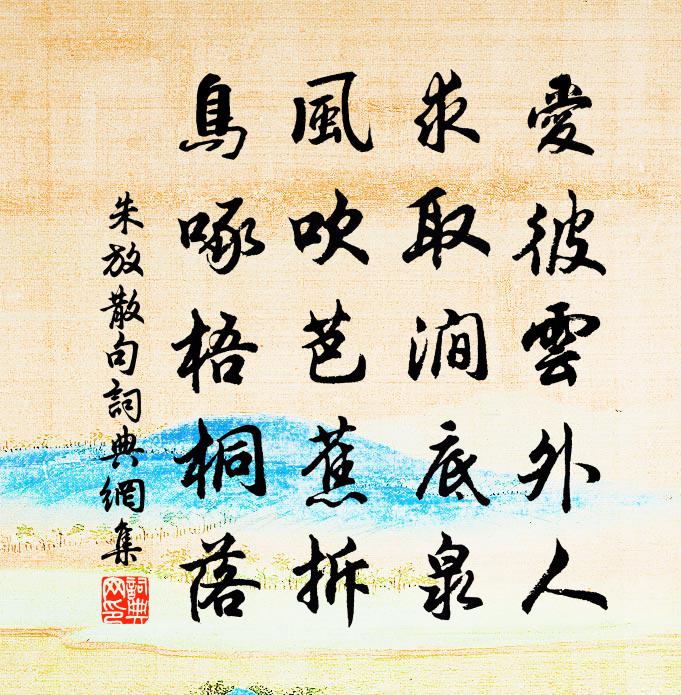 愛彼雲外人
求取澗底泉
風吹芭蕉拆
鳥啄梧桐落
朱放散句詞典網集
詞典网印